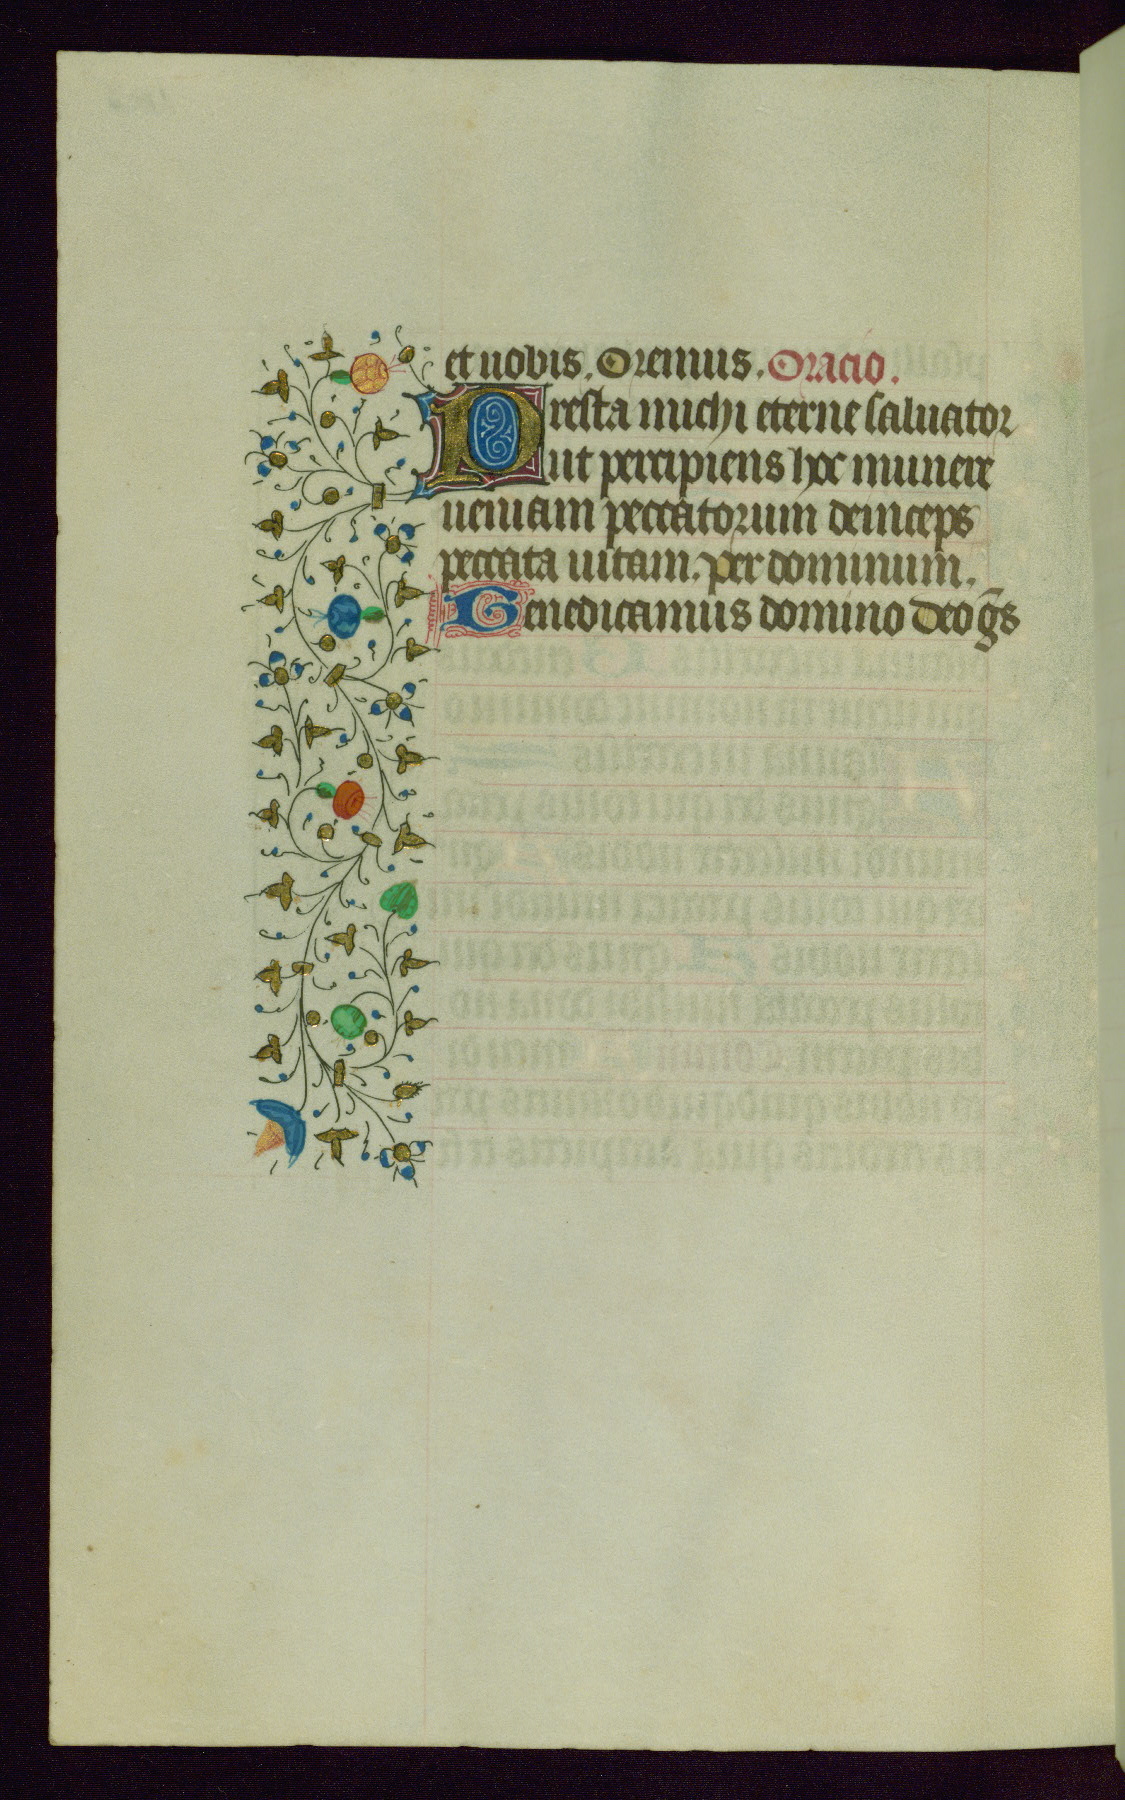 et uobis. Oremus. Oracio.
Presta michi eterne saluator
ut percipiens hoc munere
ueniam peccatorum deinceps
peccata uitam. per dominum.
Benedicamus domino Deo gr̃s